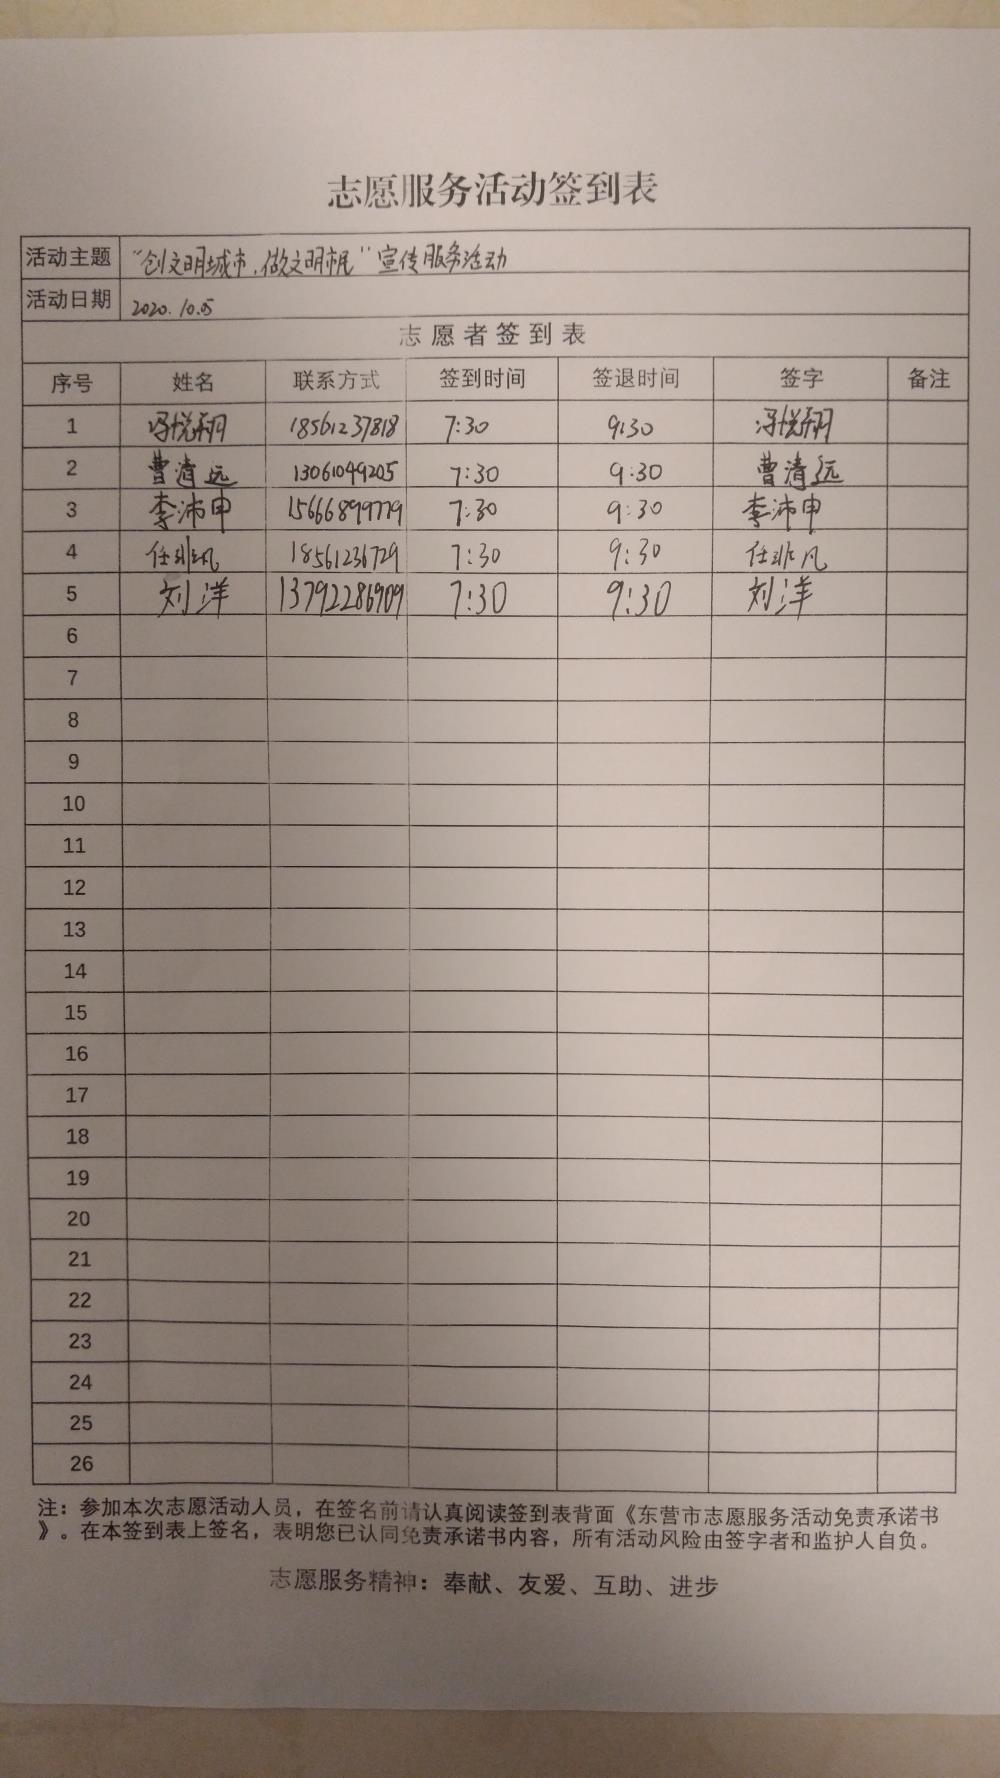 志愿服务活动签到表
活动主题 "创文明城市,做文明市民"宣传服务活动
活动日期 2020.10.05
志愿者签到表
序号 姓名 联系方式 签到时间 签退时间 签字 备注
1 冯悦翔 18561237818 7:30 9:30 冯悦翔
2 曹清远 13061049205 7:30 9:30 曹清远
3 李沛申 15666899779 7:30 9:30 李沛申
4 任非凡 18561236729 7:30 9:30 任非凡
5 刘洋 13792286909 7:30 9:30 刘洋
6
7
8
9
10
11
12
13
14
15
16
17
18
19
20
21
22
23
24
25
26
注：参加本次志愿活动人员，在签名前请认真阅读签到表背面《东营市志愿服务活动免责承诺书
》。在本签到表上签名，表明您已认同免责承诺书内容，所有活动风险由签字者和监护人自负。
志愿服务精神：奉献、友爱、互助、进步